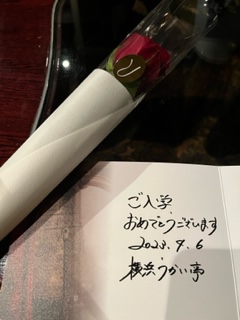 ご入学
おめでとうございます
2023.4.6
横浜うかい亭